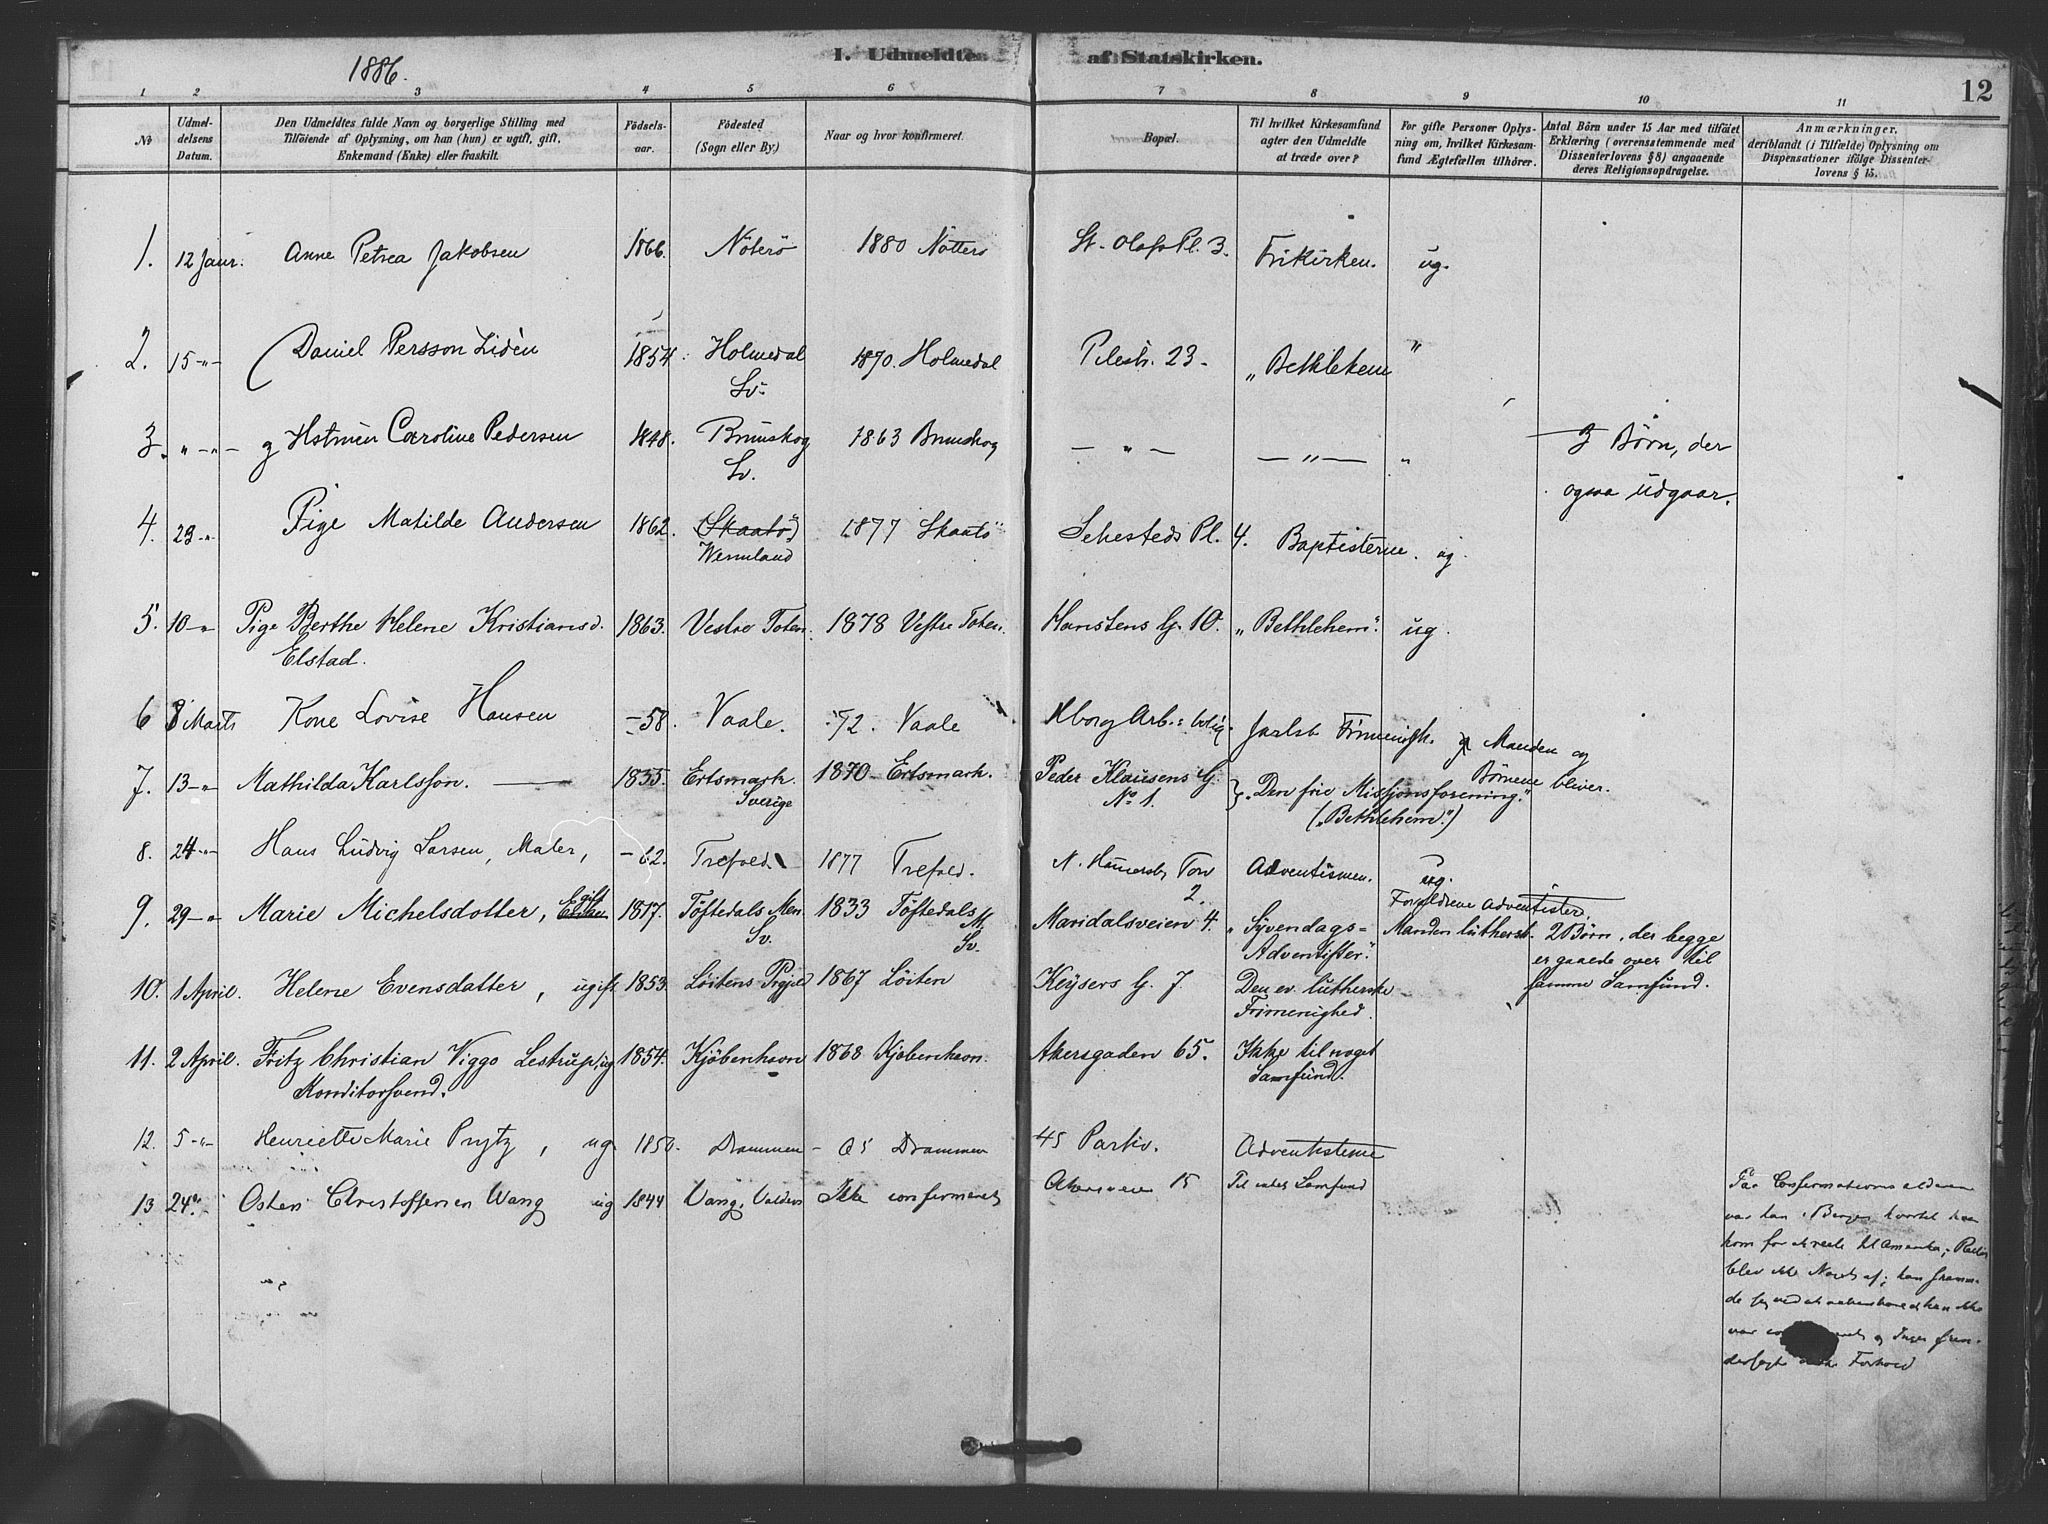 1886.
1. Udmeldte af Statskirken.
12
1 2 3 4 5 6 7 8 9 10 11
No
Udmel-
delsens
Datum.
Den Udmeldtes fulde Navn og borgerlige Stilling med
Tilföiende af Oplysning, om han (hun) er ugift, gift,
Enkemand (Enke) eller fraskilt.
Födsels-
aar.
Födested
(Sogn eller By.)
Naar og hvor konfirmeret.
Bopæl.
Til hvilket Kirkesamfund
agter den Udmeldte
at træde over?
For gifte Personer Oplys-
ning om, hvilket Kirkesam-
fund Ægtefællen tilhörer.
Antal Börn under 15 Aar med tilföiet
Erklæring (overensstemmende med
Dissenterlovens § 8) angaaende
deres Religionsopdragelse.
Anmærkninger,
deriblandt (i Tilfælde) Oplysning om
Dispensationer ifölge Dissenter-
lovens § 15.
1. 12 Janr. Anne Petrea Jakobsen 1866. Nöterö 1880 Nötterö St. Olafs Pl. 3. Frikirken. ug.
2. 15 -"- Daniel Persson Lidèn 1854. Holmedal 1870. Holmedal Pilestr. 23. "Bethlehem "
Sv.
3. " -"- g Caroline Pedersen 1848. Brunskog 1863 Brunskog - " - - " - " 3 Börn, der
Sv.
ogsaa udgaar.
4. 23 -"- Pige Matilde Andersen 1862. (Skaatö) 1877 Skaatö Sehesteds Pl. 4. Baptisterne. ug.
Wermland
5. 10 -"- Pige Berthe Helene Kristiansd. 1863. Vestre Toten. 1878 Vestre Toten. Hanstens G. 10. "Bethlehem". ug.
Elstad.
6 8 Marts Kone Lovise Hansen -58. Vaale. -72. Vaale Arb.: bolig. Jarlsb. Frimenigh. g Manden og
Börnene bliver.
7. 13 -"- Mathilda Karlsson. 1855. Ertsmark. 1870 Ertsmark. Peder Klausens G. "Den frie Missjonsforening."
Sverige
No 1.
("Bethlehem".)
8. 24 -"- Hans Ludvig Larsen, Maler, -62. Trefold 1877 Trefold. N. Hamersb. Torv Adventismen. ug.
2.
Forældrene Adventister.
9. 29 -"- Marie Michelsdotter, Egift 1817. Töftedals Men 1833 Töftedals Maridalsveien 4. "Syvendags- Manden luthersk. 2 Börn, der begge
Sv.
M.
Sv.
Adventister".
er gaaede over til
samme Samfund.
10. 1 April. Helene Evensdatter, ugift 1853. Löitens Prgjeld 1867 Löiten Keysers G. 7 Den ev. lutherske -
Frimenighed.
11. 2 April. Fritz Christian Viggo Lestrup, ug 1854. Kjöbenhavn 1868 Kjöbenhavn. Akersgaden 65. Ikke til noget
Konditorsvend.
Samfund.
12. 5 -"- Henriette Marie Prytz, ug 1850. Drammen - 65 Drammen 45 Parkv. Adventisterne
13 24 Osten Christoffersen Wang ug 1844 Vang, Valders Ikke confirmeret Akersveien 15 Til intet Samfund
Paa Confirmationsalderen
var han i Bergen hvortil han
kom for at reise til Amerika; Reisen
blev ikke Noget af; han
var
Forhold